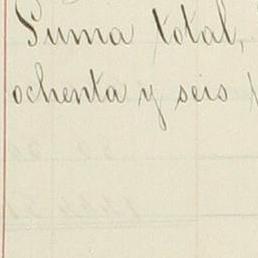 Suma total,
ochenta y seis